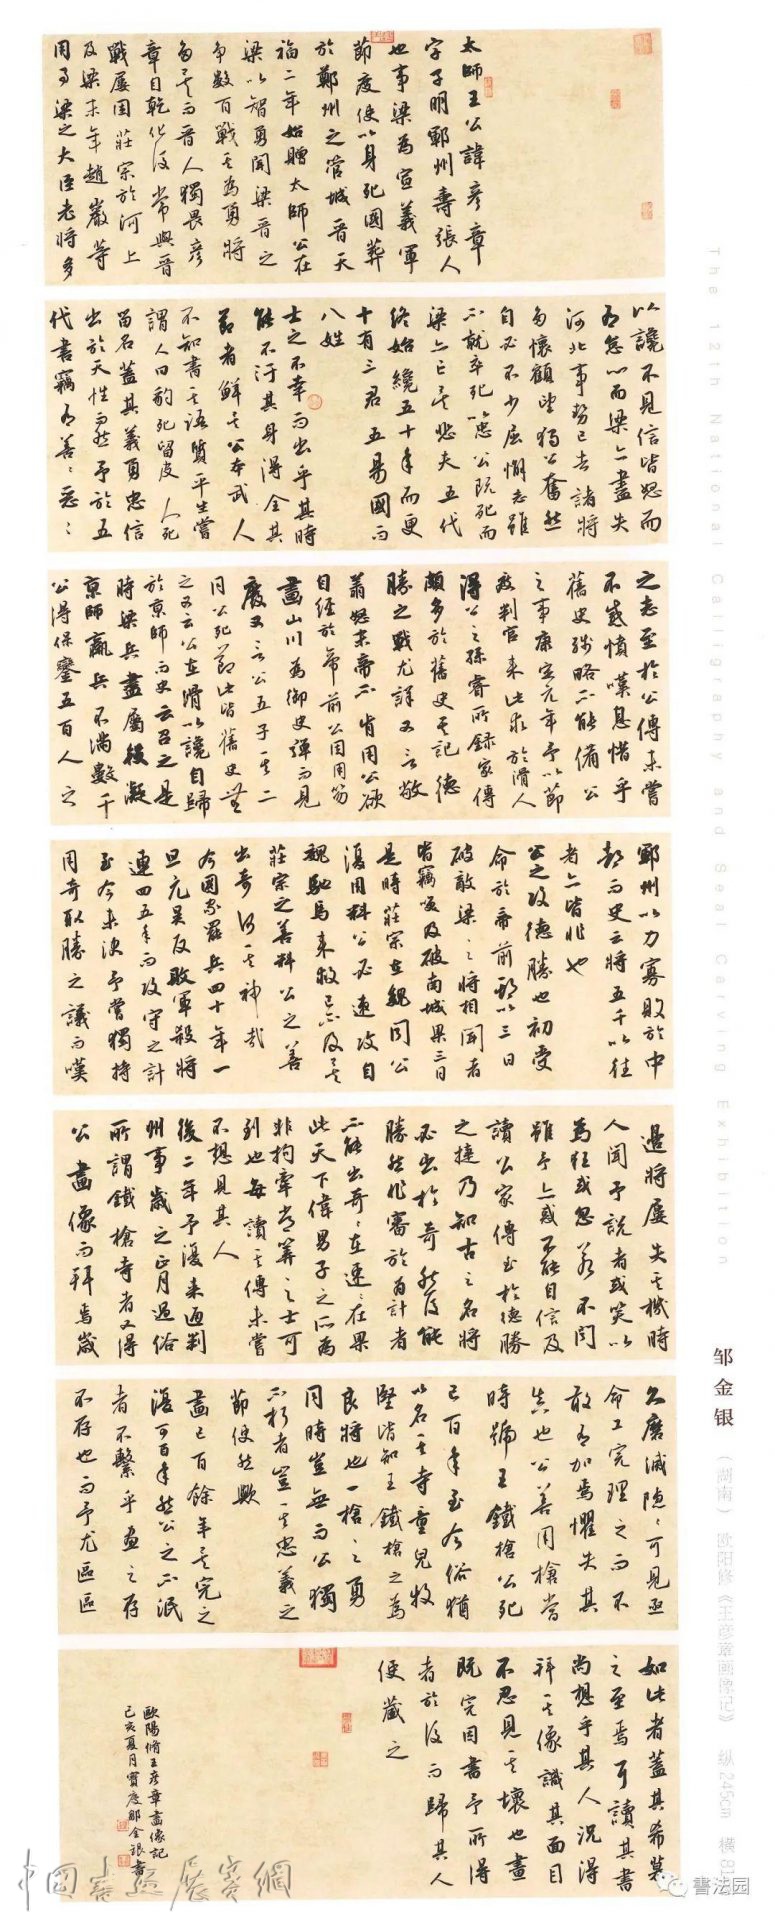 太師王公諱彥章
字子明鄆州壽張人
也事梁為宣義軍
節度使以身死國葬
於鄭州之管城晉天
福二年始贈太師公在
梁以智勇聞梁晉之
爭數百戰其為勇將
多矣而晉人獨畏彥
章自乾化後常與晉
戰屢困莊宗於河上
及梁末年趙巖等
用事梁之大臣老將多
以讒不見信皆怒而
有怠心而梁亦盡失
河北事勢已去諸將
多懷顧望獨公奮然
自必不少屈懈志雖
不就卒死以忠公既死而
梁亦亡矣悲夫五代
終始纔五十年而更
十有三君五易國而
八姓
士之不幸而出乎其時
能不汙其身得全其
節者鮮矣公本武人
不知書其語質平生嘗
謂人曰豹死留皮人死
留名蓋其義勇忠信
出於天性而然予於五
代書竊有善〻惡〻
之志至於公傳未嘗
不感憤嘆息惜乎
舊史殘略不能備公
之事康定元年予以節
度判官來此求於滑人
得公之孫睿所錄家傳
頗多於舊史其記德
勝之戰尤詳又言敬
翔怒末帝不肯用公欲
自經於帝前公因用笏
畫山川為御史彈而見
廢又言公五子其二
同公死節此皆舊史無
之又云公在滑以讒自歸
於京師而史云召之是
時梁兵盡屬段凝
京師羸兵不滿數千
公得保鑾五百人之
鄆州以力寡敗於中
都而史云將五千以往
者亦皆非也
公之攻德勝也初受
命於帝前期以三日
破敵梁〻之將相聞者
皆竊笑及破南城果三日
是時莊宗在魏聞公
復用料公必速攻自
魏馳馬來救已不及矣
莊宗之善料公之善
出奇何其神哉
今國家罷兵四十年一
旦元昊反敗軍殺將
連四五年而攻守之計
至今未決予嘗獨持
用奇取勝之議而嘆
邊將屢失其機時
人聞予說者或笑以
為狂或忽若不聞
雖予亦惑不能自信及
讀公家傳至於德勝
之捷乃知古之名將
必出於奇然後能
勝然非審於為計者
不能出奇〻在速〻在果
此天下偉男子之所為
非拘牽常算之士可
到也每讀其傳未嘗
不想見其人
後二年予復來通判
州事歲之正月過俗
所謂鐵槍寺者又得
公畫像而拜焉歲
久磨滅隱〻可見亟
命工完理之而不
敢有加焉懼失其
真也公善用槍當
時號王鐵槍公死
已百年至今俗猶
以名其寺童兒牧
豎皆知王鐵槍之為
良將也一槍之勇
同時豈無而公獨
不朽者豈其忠義之
節使然歟
畫已百餘年矣完之
復可百年然公之不泯
者不繫乎畫之存
不存也而予尤區區
如此者蓋其希慕
之至焉耳讀其書
尚想乎其人況得
拜其像識其面目
不忍見其壞也畫
既完因書予所得
者於後而歸其人
使藏之
歐陽脩王彥章畫像記
己亥夏月寶慶鄒金銀書
The 12th National Calligraphy and Seal Carving Exhibition
邹金银
（湖南） 欧阳修《王彦章画像记》 纵245cm 横81
中國書法展賽網
書法园